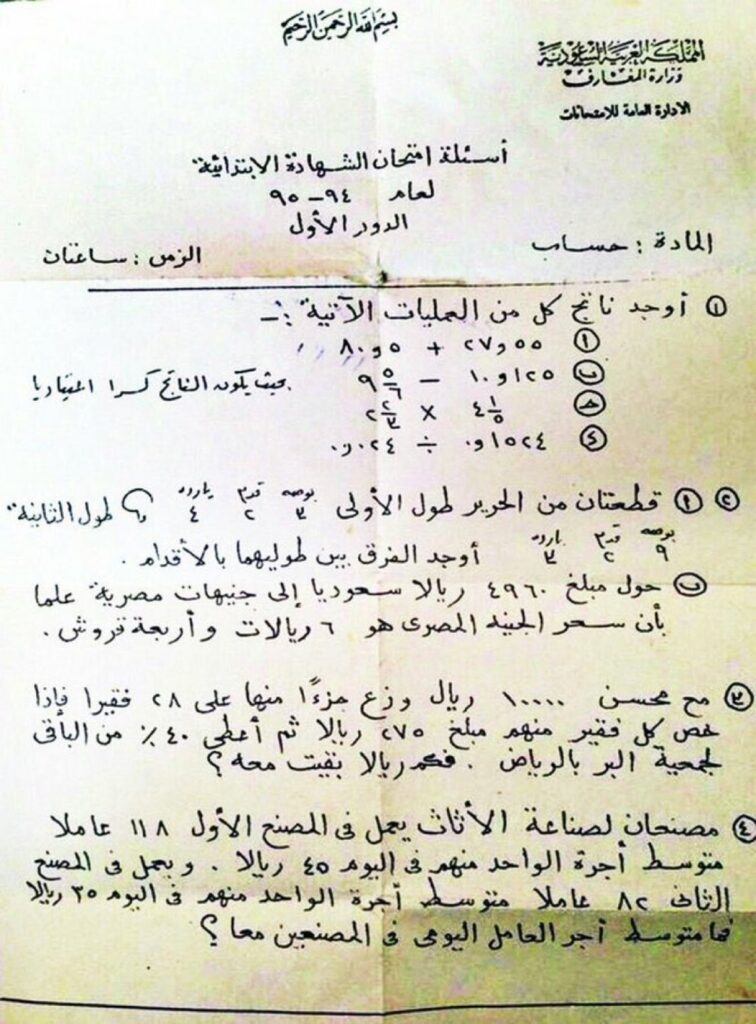 بسم الله الرحمن الرحيم
المملكة العربية السعودية
وزارة المعارف
الادارة العامة للامتحانات
أسئلة امتحان الشهادة الابتدائية
لعام ٩٤ - ٩٥
الدور الأول
المادة : حساب
الزمن : ساعتان
١ أوجد ناتج كل من العمليات الآتية :-
أ ٥٥و٢٧ + ٥و٨٠
ب ١٢٥و١٠ - ٩ ٥/٦ بحيث يكون الناتج كسرا اعتياديا
ج ٤ ١/٥ × ٢ ٢/٣
د ١٥٢٤و٠ ÷ ٠٢٤و٠
٢ أ قطعتان من الحرير طول الأولى ٣ بوصه ٢ قدم ٤ يارده و طول الثانية
٩ بوصه ٢ قدم ٣ يارده أوجد الفرق بين طوليهما بالأقدام .
ب حول مبلغ ٤٩٦٠ ريالا سعوديا إلى جنيهات مصرية علما
بأن سعر الجنيه المصرى هو ٦ ريالات وأربعة قروش .
٣ مع محسن ١٠٠٠٠ ريال وزع جزءًا منها على ٢٨ فقيرا فإذا
خص كل فقير منهم مبلغ ٢٧٥ ريالا ثم أعطى ٤٠ ٪ من الباقى
لجمعية البر بالرياض . فكم ريالا بقيت معه ؟
٤ مصنعان لصناعة الأثاث يعمل فى المصنع الأول ١١٨ عاملا
متوسط أجرة الواحد منهم فى اليوم ٤٥ ريالا . ويعمل فى المصنع
الثانى ٨٢ عاملا متوسط أجرة الواحد منهم فى اليوم ٣٥ ريالا
فما متوسط أجر العامل اليومى فى المصنعين معا ؟